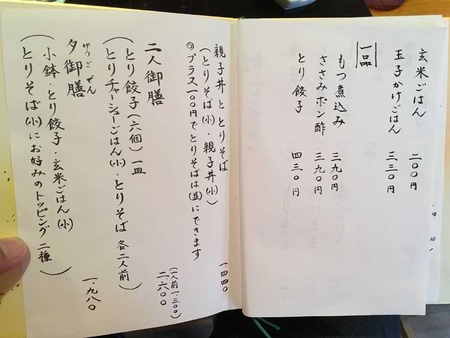 玄米ごはん 二〇〇円
玉子かけごはん 三三〇円
一品
もつ煮込み 三九〇円
ささみポン酢 三九〇円
とり餃子 四三〇円
親子丼ととりそば
(とりそば(小)・親子丼(小)) 一、四四〇
プラス一〇〇円でとりそばは(並)にできます
二人御膳 二、六〇〇
(一人前一、三〇〇)
(とり餃子(六個)一皿
とりチャーシューごはん(小)・とりそば 各二人前)
ゆうごぜん
夕御膳 一、九八〇
(小鉢・とり餃子・玄米ごはん(小)
とりそば(小)にお好みのトッピング二種)